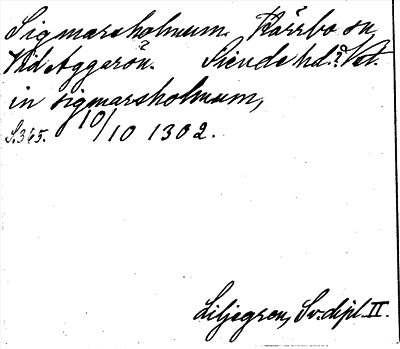 Sigmarsholmum. Kärrbo sn
Vid Aggarön. Siende hd.? Vstl.
in sigmarsholmum,
S.345. 10/10 1302.
Liljegren, Sv. dipl. II.